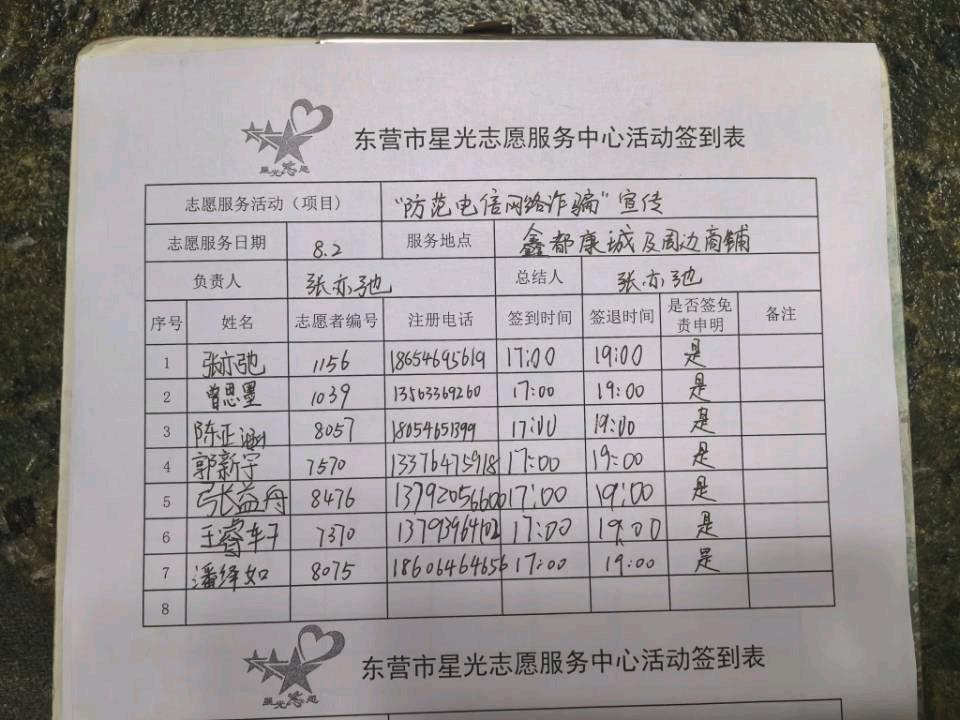 东营市星光志愿服务中心活动签到表
星光志愿
志愿服务活动（项目） “防范电信网络诈骗”宣传
志愿服务日期 8.2 服务地点 鑫都康城及周边商铺
负责人 张亦弛 总结人 张亦弛
序号 姓名 志愿者编号 注册电话 签到时间 签退时间 是否签免责申明 备注
1 张亦弛 1156 18654695619 17:00 19:00 是
2 曾思墨 1039 13563369260 17:00 19:00 是
3 陈正涵 8057 18054651399 17:00 19:00 是
4 郭新宇 7570 13376475918 17:00 19:00 是
5 张益舟 8476 13792056600 17:00 19:00 是
6 王睿轩 7370 13793964102 17:00 19:00 是
7 潘绎如 8075 18606464656 17:00 19:00 是
8
东营市星光志愿服务中心活动签到表
星光志愿